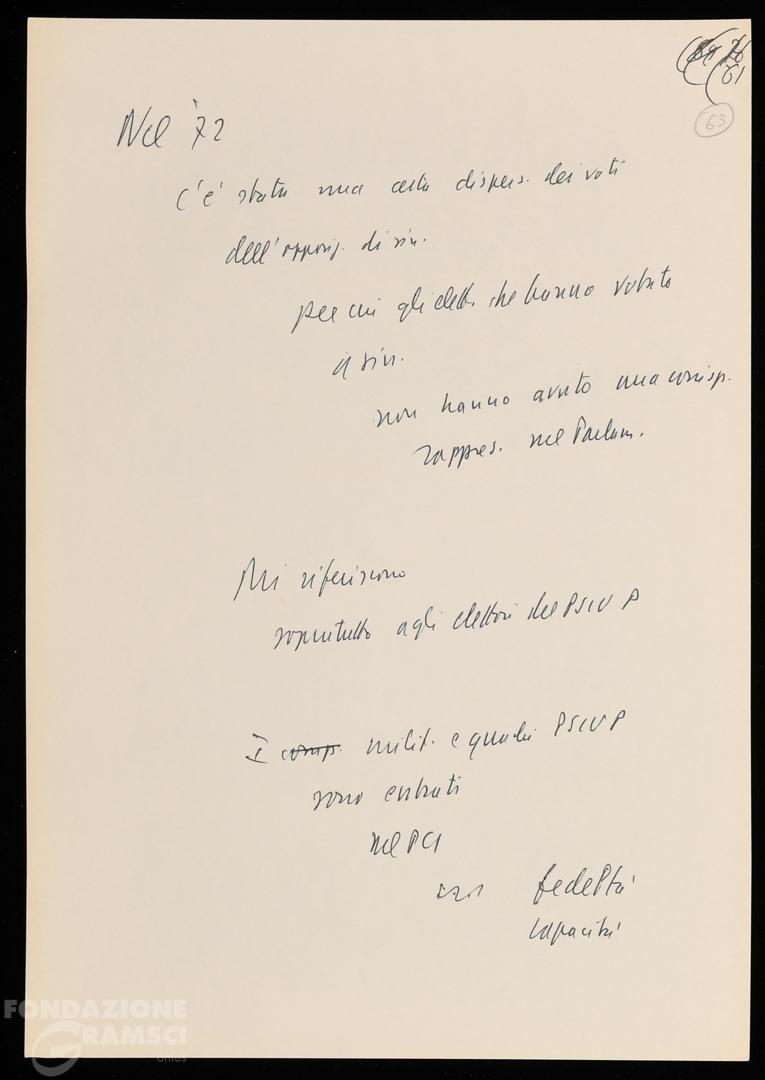 61
63
Nel '72
C'è stata una certa dispers. dei voti
dell'opposiz. di sin.
per cui gli elett. che hanno votato
a sin.
non hanno avuto una corrisp.
rappres. nel Parlam.
Mi riferiscono
soprattutto agli elettori del PSIUP
I comp. milit. e quadri PSIUP
sono entrati
nel PCI
con fedeltà
capacità
FONDAZIONE
GRAMSCI
onlus